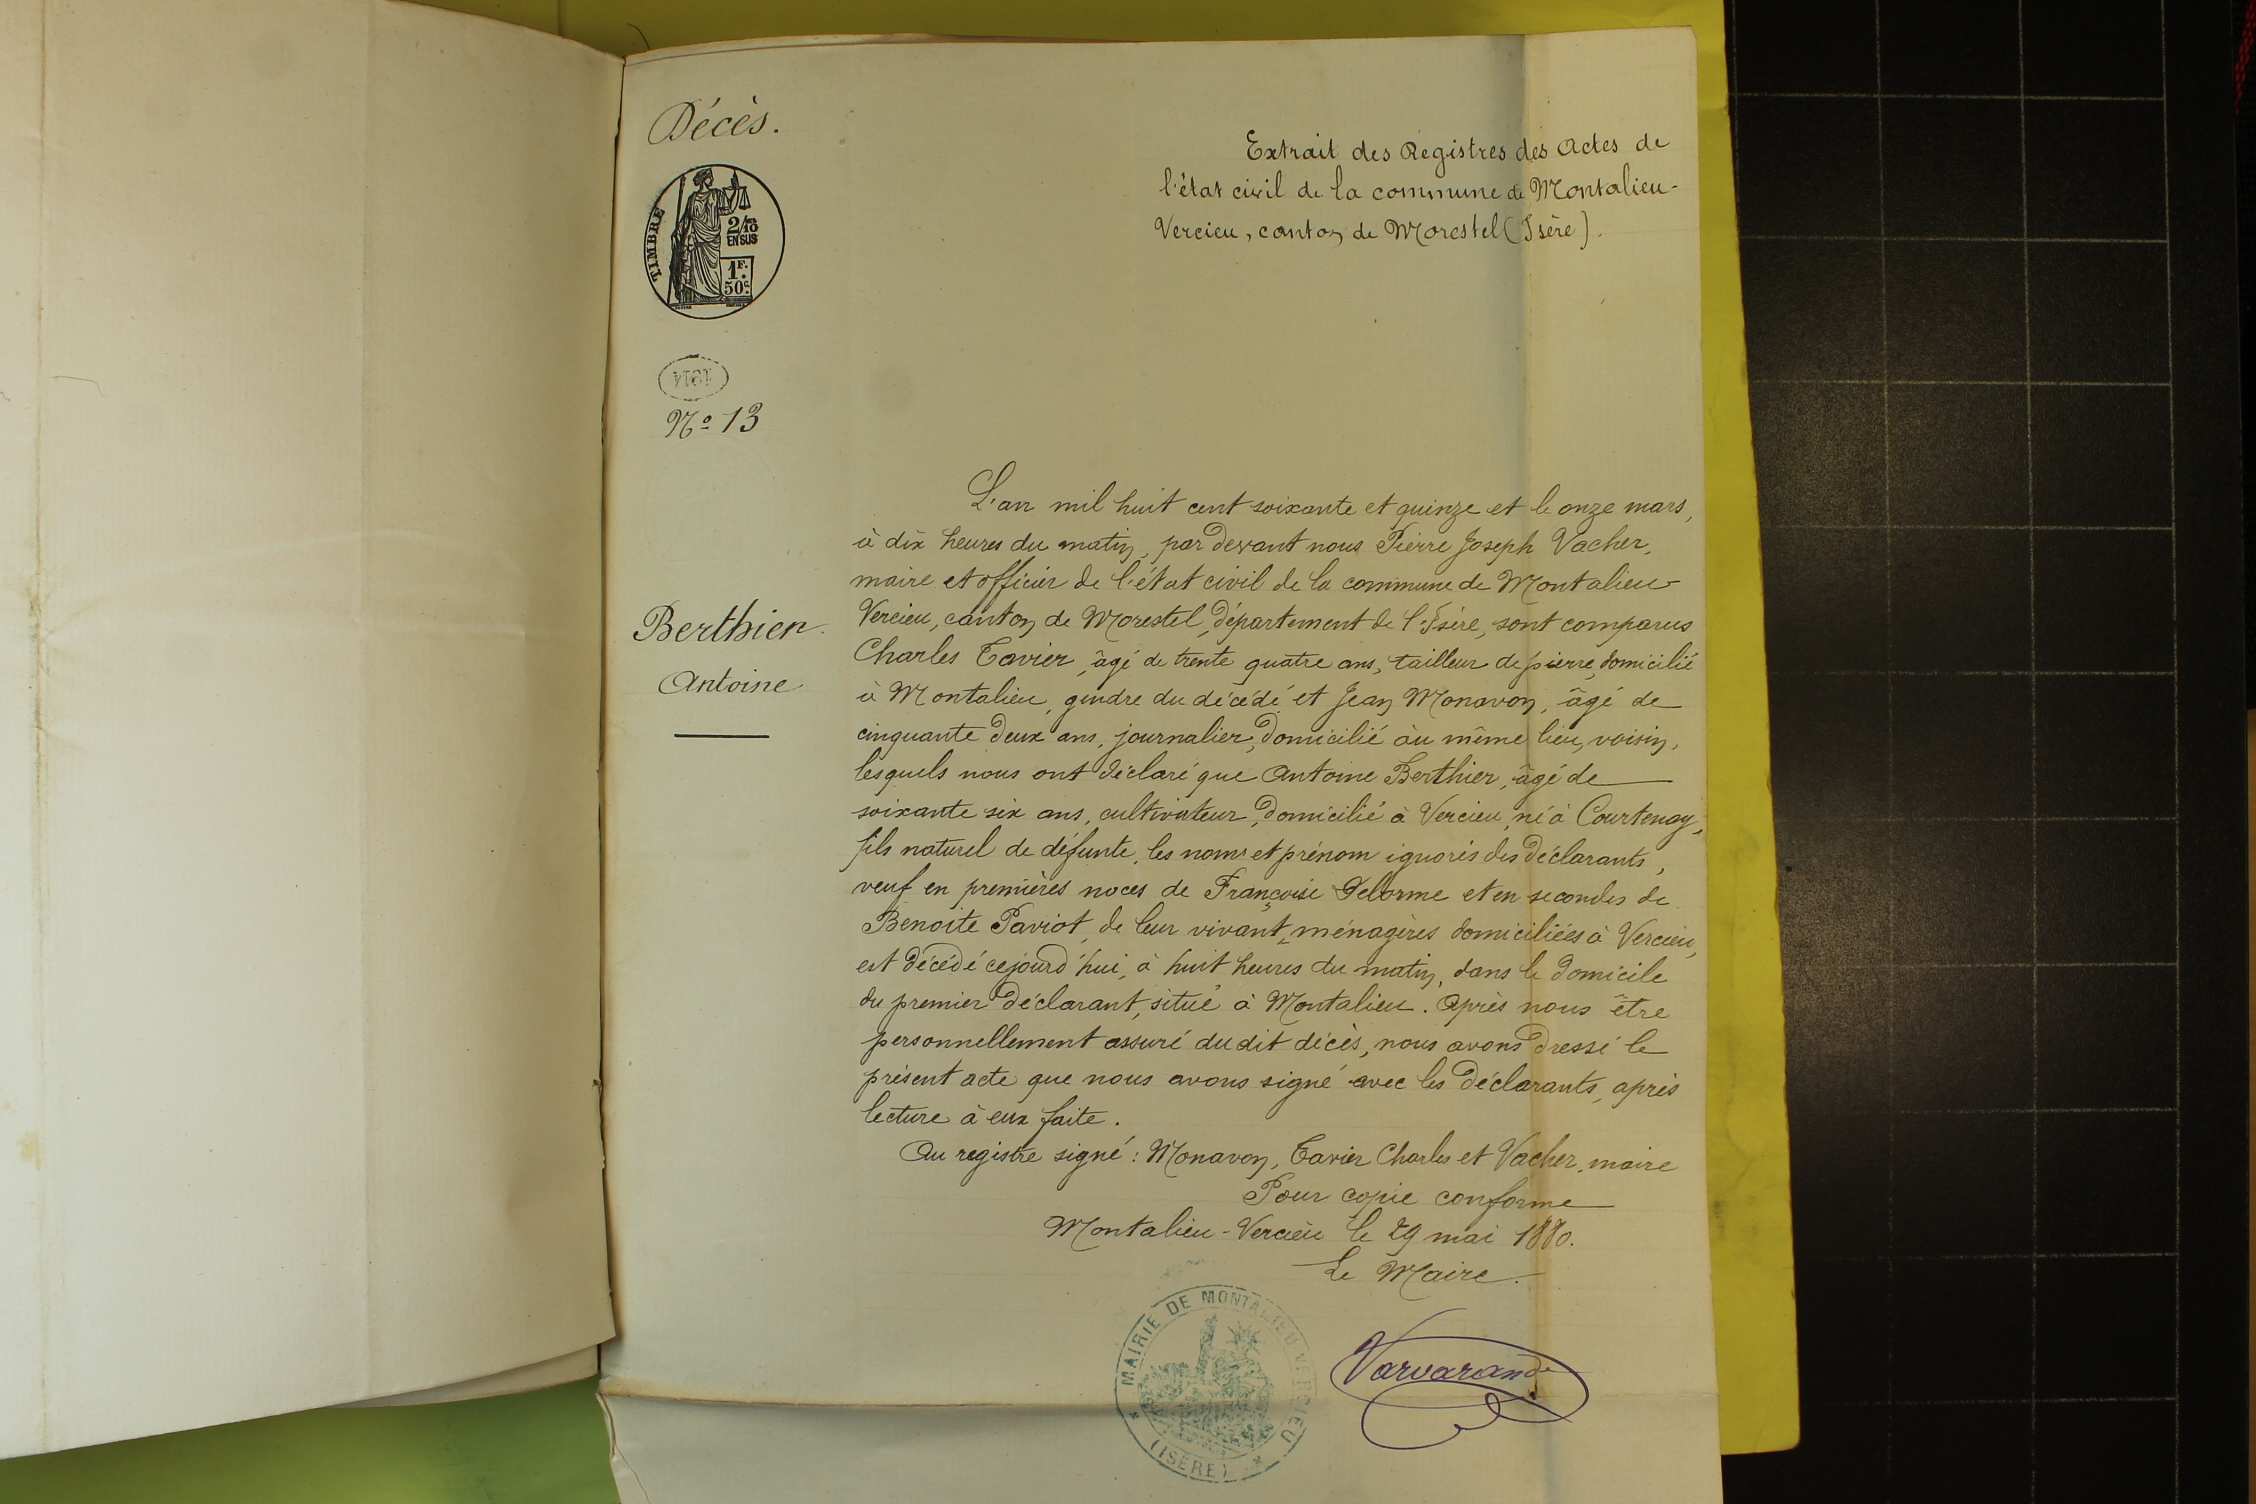 Décès.
TIMBRE
2/10
EN SUS
1F.
50c.
No 13
Berthier
Antoine
Extrait des Registres des Actes de
l'état civil de la commune de Montalieu-
Vercieu, canton de Morestel (Isère).
L'an mil huit cent soixante et quinze et le onze mars,
à dix heures du matin, par devant nous Pierre Joseph Vacher,
maire et officier de l'état civil de la commune de Montalieu-
Vercieu, canton de Morestel, département de l'Isère, sont comparus
Charles Tavier, âgé de trente quatre ans, tailleur de pierre, domicilié
à Montalieu, gendre du décédé et Jean Monavon, âgé de
cinquante deux ans, journalier, domicilié au même lieu, voisin,
lesquels nous ont déclaré que Antoine Berthier, âgé de
soixante six ans, cultivateur, domicilié à Vercieu, né à Courtenay,
fils naturel de défunte, les noms et prénom ignorés des déclarants,
veuf en premières noces de Françoise Delorme et en secondes de
Benoite Paviot, de leur vivant, ménagères domiciliées à Vercieu,
est décédé cejourd'hui, à huit heures du matin, dans le domicile
du premier déclarant, situé à Montalieu. Après nous être
personnellement assuré dudit décès, nous avons dressé le
présent acte que nous avons signé avec les déclarants, après
lecture à eux faite.
Au registre signé : Monavon, Tavier Charles et Vacher, maire
Pour copie conforme
Montalieu-Vercieu le 29 mai 1880.
Le Maire.
MAIRIE DE MONTALIEU-VERCIEU
(ISÈRE)
Varvarande